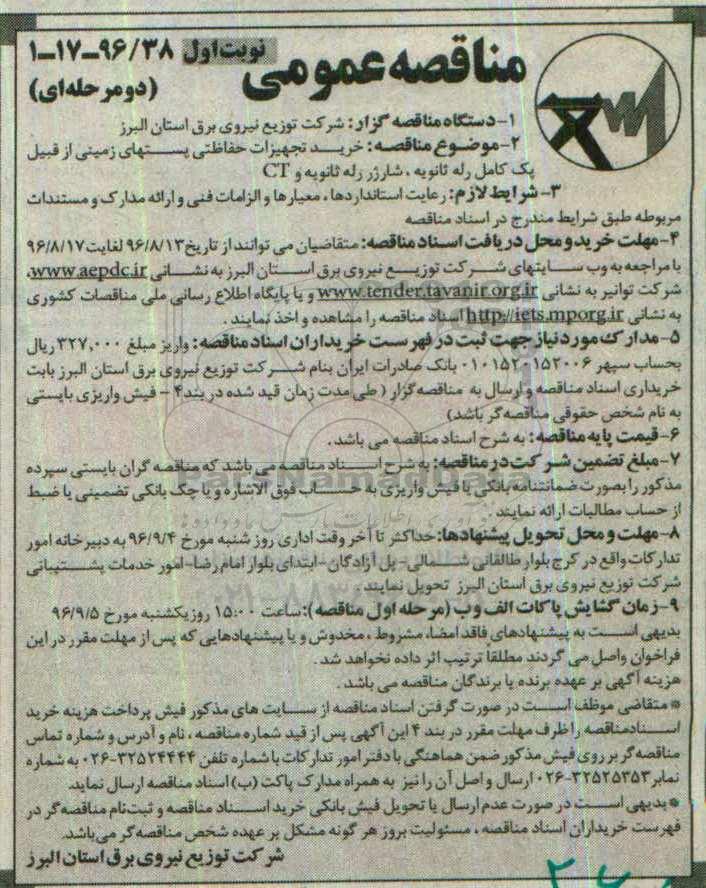 مناقصه عمومی
نوبت اول ۹۶/۳۸-۱۷-۱
(دو مرحله‌ای)
۱- دستگاه مناقصه گزار: شرکت توزیع نیروی برق استان البرز
۲- موضوع مناقصه: خرید تجهیزات حفاظتی پستهای زمینی از قبیل
پک کامل رله ثانویه ، شارژر رله ثانویه و CT
۳- شرایط لازم: رعایت استانداردها، معیارها و الزامات فنی و ارائه مدارک و مستندات
مربوطه طبق شرایط مندرج در اسناد مناقصه
۴- مهلت خرید و محل دریافت اسناد مناقصه: متقاضیان می توانند از تاریخ ۹۶/۸/۱۳ لغایت ۹۶/۸/۱۷
با مراجعه به وب سایتهای شرکت توزیع نیروی برق استان البرز به نشانی www.aepdc.ir،
شرکت توانیر به نشانی www.tender.tavanir.org.ir و یا پایگاه اطلاع رسانی ملی مناقصات کشوری
به نشانی http://iets.mporg.ir اسناد مناقصه را مشاهده و اخذ نمایند .
۵- مدارک مورد نیاز جهت ثبت در فهرست خریداران اسناد مناقصه: واریز مبلغ ۳۲۷,۰۰۰ ریال
بحساب سپهر ۰۱۰۱۵۲۰۱۵۲۰۰۶ بانک صادرات ایران بنام شرکت توزیع نیروی برق استان البرز بابت
خریداری اسناد مناقصه و ارسال به مناقصه گزار ( طی مدت زمان قید شده در بند ۴ - فیش واریزی بایستی
به نام شخص حقوقی مناقصه‌گر باشد)
۶- قیمت پایه مناقصه: به شرح اسناد مناقصه می باشد .
۷- مبلغ تضمین شرکت در مناقصه: به شرح اسناد مناقصه می باشد که مناقصه گران بایستی سپرده
مذکور را بصورت ضمانتنامه بانکی یا فیش واریزی به حساب فوق الاشاره و یا چک بانکی تضمینی یا ضبط
از حساب مطالبات ارائه نمایند .
۸- مهلت و محل تحویل پیشنهادها: حداکثر تا آخر وقت اداری روز شنبه مورخ ۹۶/۹/۴ به دبیرخانه امور
تدارکات واقع در کرج بلوار طالقانی شمالی- پل آزادگان- ابتدای بلوار امام رضا- امور خدمات پشتیبانی
شرکت توزیع نیروی برق استان البرز تحویل نمایند
۹- زمان گشایش پاکات الف و ب (مرحله اول مناقصه): ساعت ۱۵:۰۰ روز یکشنبه مورخ ۹۶/۹/۵
بدیهی است به پیشنهادهای فاقد امضا، مشروط ، مخدوش و یا پیشنهادهایی که پس از مهلت مقرر در این
فراخوان واصل می گردند مطلقا ترتیب اثر داده نخواهد شد .
هزینه آگهی بر عهده برنده یا برندگان مناقصه می باشد .
* متقاضی موظف است در صورت گرفتن اسناد مناقصه از سایت های مذکور فیش پرداخت هزینه خرید
اسناد مناقصه را ظرف مهلت مقرر در بند ۴ این آگهی پس از قید شماره مناقصه ، نام و آدرس و شماره تماس
مناقصه گر بر روی فیش مذکور ضمن هماهنگی با دفتر امور تدارکات با شماره تلفن ۳۲۵۲۴۴۴۴-۰۲۶ به شماره
نمابر ۳۲۵۲۵۳۵۳-۰۲۶ ارسال و اصل آن را نیز به همراه مدارک پاکت (ب) اسناد مناقصه ارسال نماید.
* بدیهی است در صورت عدم ارسال یا تحویل فیش بانکی خرید اسناد مناقصه و ثبت‌نام مناقصه گر در
فهرست خریداران اسناد مناقصه ، مسئولیت بروز هر گونه مشکل بر عهده شخص مناقصه‌گر می‌باشد.
شرکت توزیع نیروی برق استان البرز